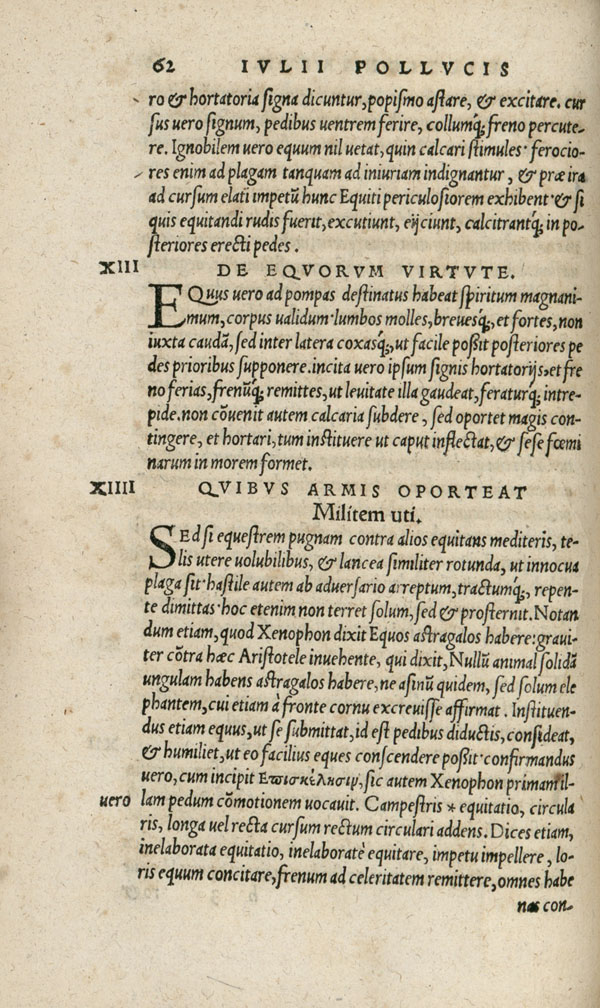 62 IVLII POLLVCIS
ro & hortatoria signa dicuntur, popismo astare, & excitare. cur
sus uero signum, pedibus uentrem ferire, collumq; freno percute-
re. Ignobilem uero equum nil uetat, quin calcari stimules· ferocio-
res enim ad plagam tanquam ad iniuriam indignantur, & præ ira
ad cursum elati impetū hunc Equiti periculosiorem exhibent· & si
quis equitandi rudis fuerit, excutiunt, eijciunt, calcitrantq; in po-
steriores erecti pedes.
XIII DE EQVORVM VIRTVTE.
EQuus uero ad pompas destinatus habeat spiritum magnani-
mum, corpus ualidum·lumbos molles, breuesq;, et fortes, non
iuxta caudā, sed inter latera coxasq;, ut facile possit posteriores pe
des prioribus supponere. incita uero ipsum signis hortatorijs, et fre
no ferias, frenūq; remittes, ut leuitate illa gaudeat, feraturq; intre-
pide. non cōuenit autem calcaria subdere, sed oportet magis con-
tingere, et hortari, tum instituere ut caput inflectat, & sese fœmi
narum in morem formet.
XIIII QVIBVS ARMIS OPORTEAT
Militem uti.
SEd si equestrem pugnam contra alios equitans mediteris, te-
lis utere uolubilibus, & lancea similiter rotunda, ut innocua
plaga sit· hastile autem ab aduersario arreptum, tractumq;, repen-
te dimittas· hoc etenim non terret solum, sed & prosternit. Notan
dum etiam, quod Xenophon dixit Equos astragalos habere: graui-
ter cōtra hæc Aristotele inuehente, qui dixit, Nullū animal solidā
ungulam habens astragalos habere, ne asinū quidem, sed solum ele
phantem, cui etiam à fronte cornu excreuisse affirmat. Instituen-
dus etiam equus, ut se submittat, id est pedibus diductis, consideat,
& humiliet, ut eo facilius eques conscendere possit· confirmandus
uero, cum incipit Επισκέλησιν, sic autem Xenophon primam il-
uero lam pedum cōmotionem uocauit. Campestris * equitatio, circula
ris, longa uel recta cursum rectum circulari addens. Dices etiam,
inelaborata equitatio, inelaboratè equitare, impetu impellere, lo-
ris equum concitare, frenum ad celeritatem remittere, omnes habe
nas con-